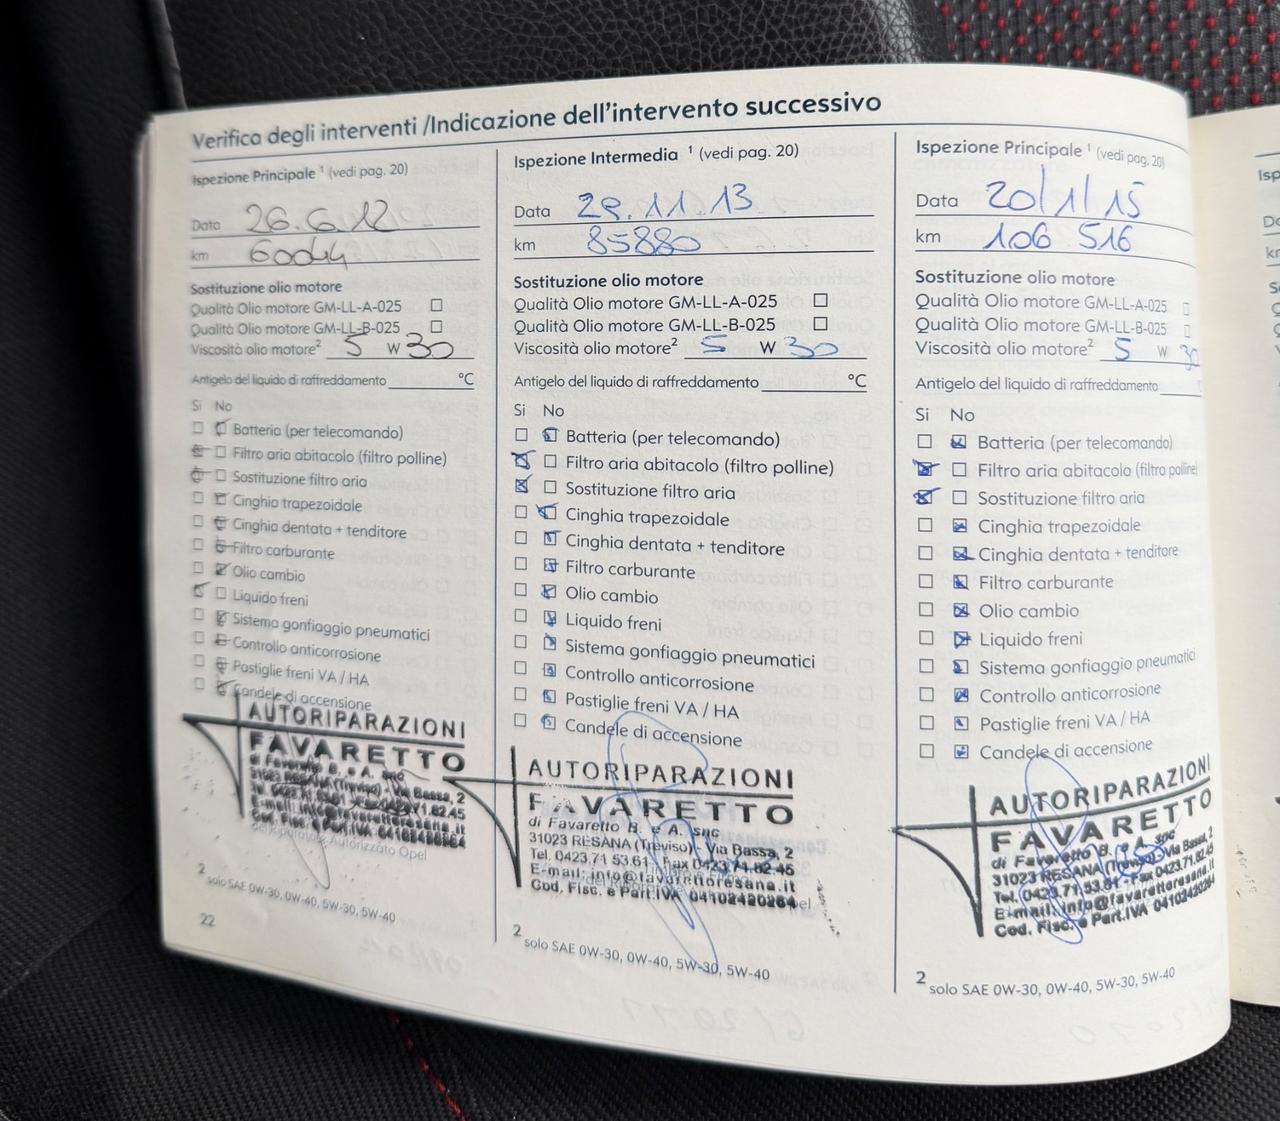 Verifica degli interventi /Indicazione dell'intervento successivo
Ispezione Principale ¹ (vedi pag. 20)
Data 26.6.12
km 60044
Sostituzione olio motore
Qualità Olio motore GM-LL-A-025
Qualità Olio motore GM-LL-B-025
Viscosità olio motore² 5 W 30
Antigelo del liquido di raffreddamento °C
Si No
Batteria (per telecomando)
Filtro aria abitacolo (filtro polline)
Sostituzione filtro aria
Cinghia trapezoidale
Cinghia dentata + tenditore
Filtro carburante
Olio cambio
Liquido freni
Sistema gonfiaggio pneumatici
Controllo anticorrosione
Pastiglie freni VA / HA
Candele di accensione
AUTORIPARAZIONI
FAVARETTO
di Favaretto B. e A. snc
31023 RESANA (Treviso) - Via Bassa, 2
E-mail: info@favarettoresana.it
Cod. Fisc. e Part.IVA 04102420264
Autorizzato Opel
2 solo SAE 0W-30, 0W-40, 5W-30, 5W-40
22
Ispezione Intermedia ¹ (vedi pag. 20)
Data 29.11.13
km 85880
Sostituzione olio motore
Qualità Olio motore GM-LL-A-025
Qualità Olio motore GM-LL-B-025
Viscosità olio motore² 5 W 30
Antigelo del liquido di raffreddamento °C
Si No
Batteria (per telecomando)
Filtro aria abitacolo (filtro polline)
Sostituzione filtro aria
Cinghia trapezoidale
Cinghia dentata + tenditore
Filtro carburante
Olio cambio
Liquido freni
Sistema gonfiaggio pneumatici
Controllo anticorrosione
Pastiglie freni VA / HA
Candele di accensione
AUTORIPARAZIONI
FAVARETTO
di Favaretto B. e A. snc
31023 RESANA (Treviso) - Via Bassa, 2
Tel. 0423.71 53.61 - Fax 0423.71.82.45
E-mail: info@favarettoresana.it
Cod. Fisc. e Part.IVA 04102420264
2 solo SAE 0W-30, 0W-40, 5W-30, 5W-40
Ispezione Principale ¹ (vedi pag. 20)
Data 20/1/15
km 106 516
Sostituzione olio motore
Qualità Olio motore GM-LL-A-025
Qualità Olio motore GM-LL-B-025
Viscosità olio motore² 5 W 30
Antigelo del liquido di raffreddamento
Si No
Batteria (per telecomando)
Filtro aria abitacolo (filtro polline)
Sostituzione filtro aria
Cinghia trapezoidale
Cinghia dentata + tenditore
Filtro carburante
Olio cambio
Liquido freni
Sistema gonfiaggio pneumatici
Controllo anticorrosione
Pastiglie freni VA / HA
Candele di accensione
AUTORIPARAZIONI
FAVARETTO
di Favaretto B. e A. snc
31023 RESANA (Treviso) - Via Bassa, 2
Tel. 0423.71.53.61 - Fax 0423.71.82.45
E-mail: info@favarettoresana.it
Cod. Fisc. e Part.IVA 04102420264
2 solo SAE 0W-30, 0W-40, 5W-30, 5W-40